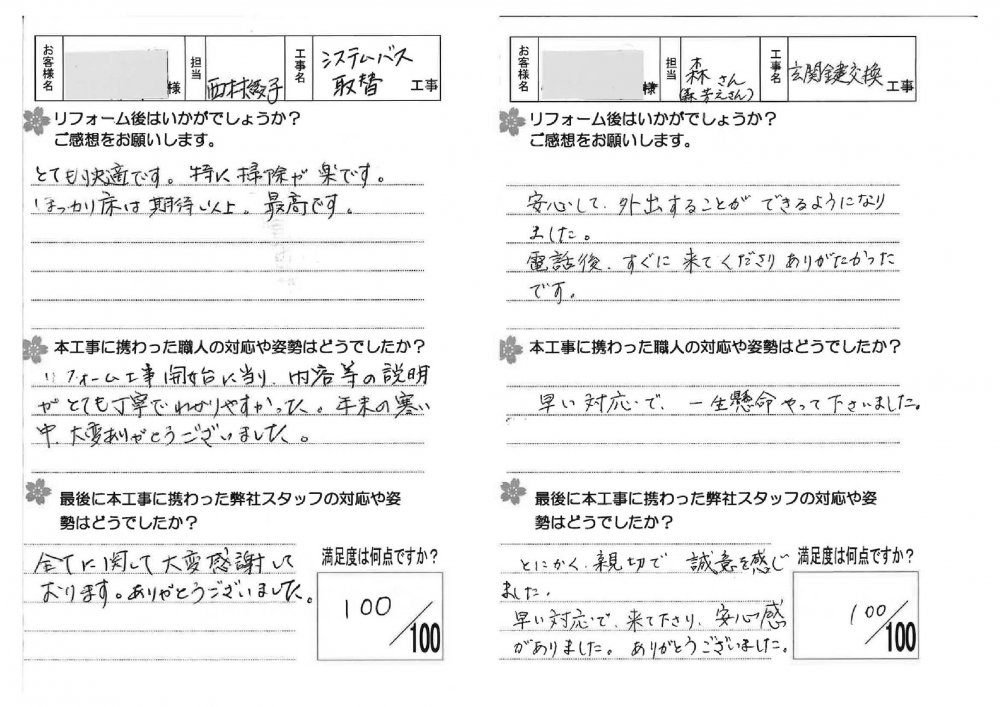 お客様名
様
担当
西村綾子
工事名
システムバス
取替
工事
リフォーム後はいかがでしょうか?
ご感想をお願いします。
とても快適です。特に掃除が楽です。
ほっカリ床は期待以上。最高です。
本工事に携わった職人の対応や姿勢はどうでしたか?
リフォーム工事開始に当り、内容等の説明
がとても丁寧でわかりやすかった。年末の寒い
中、大変ありがとうございました。
最後に本工事に携わった弊社スタッフの対応や姿
勢はどうでしたか?
全てに関して大変感謝して
おります。ありがとうございました。
満足度は何点ですか?
100
/100
お客様名
様
担当
森さん
(森芳えさん)
工事名
玄関鍵交換
工事
リフォーム後はいかがでしょうか?
ご感想をお願いします。
安心して、外出することができるようになり
ました。
電話後、すぐに来てくださりありがたかった
です。
本工事に携わった職人の対応や姿勢はどうでしたか?
早い対応で、一生懸命やって下さいました。
最後に本工事に携わった弊社スタッフの対応や姿
勢はどうでしたか?
とにかく、親切で 誠意を感じ
ました。
早い対応で、来て下さり、安心感
がありました。ありがとうございました。
満足度は何点ですか?
100
/100